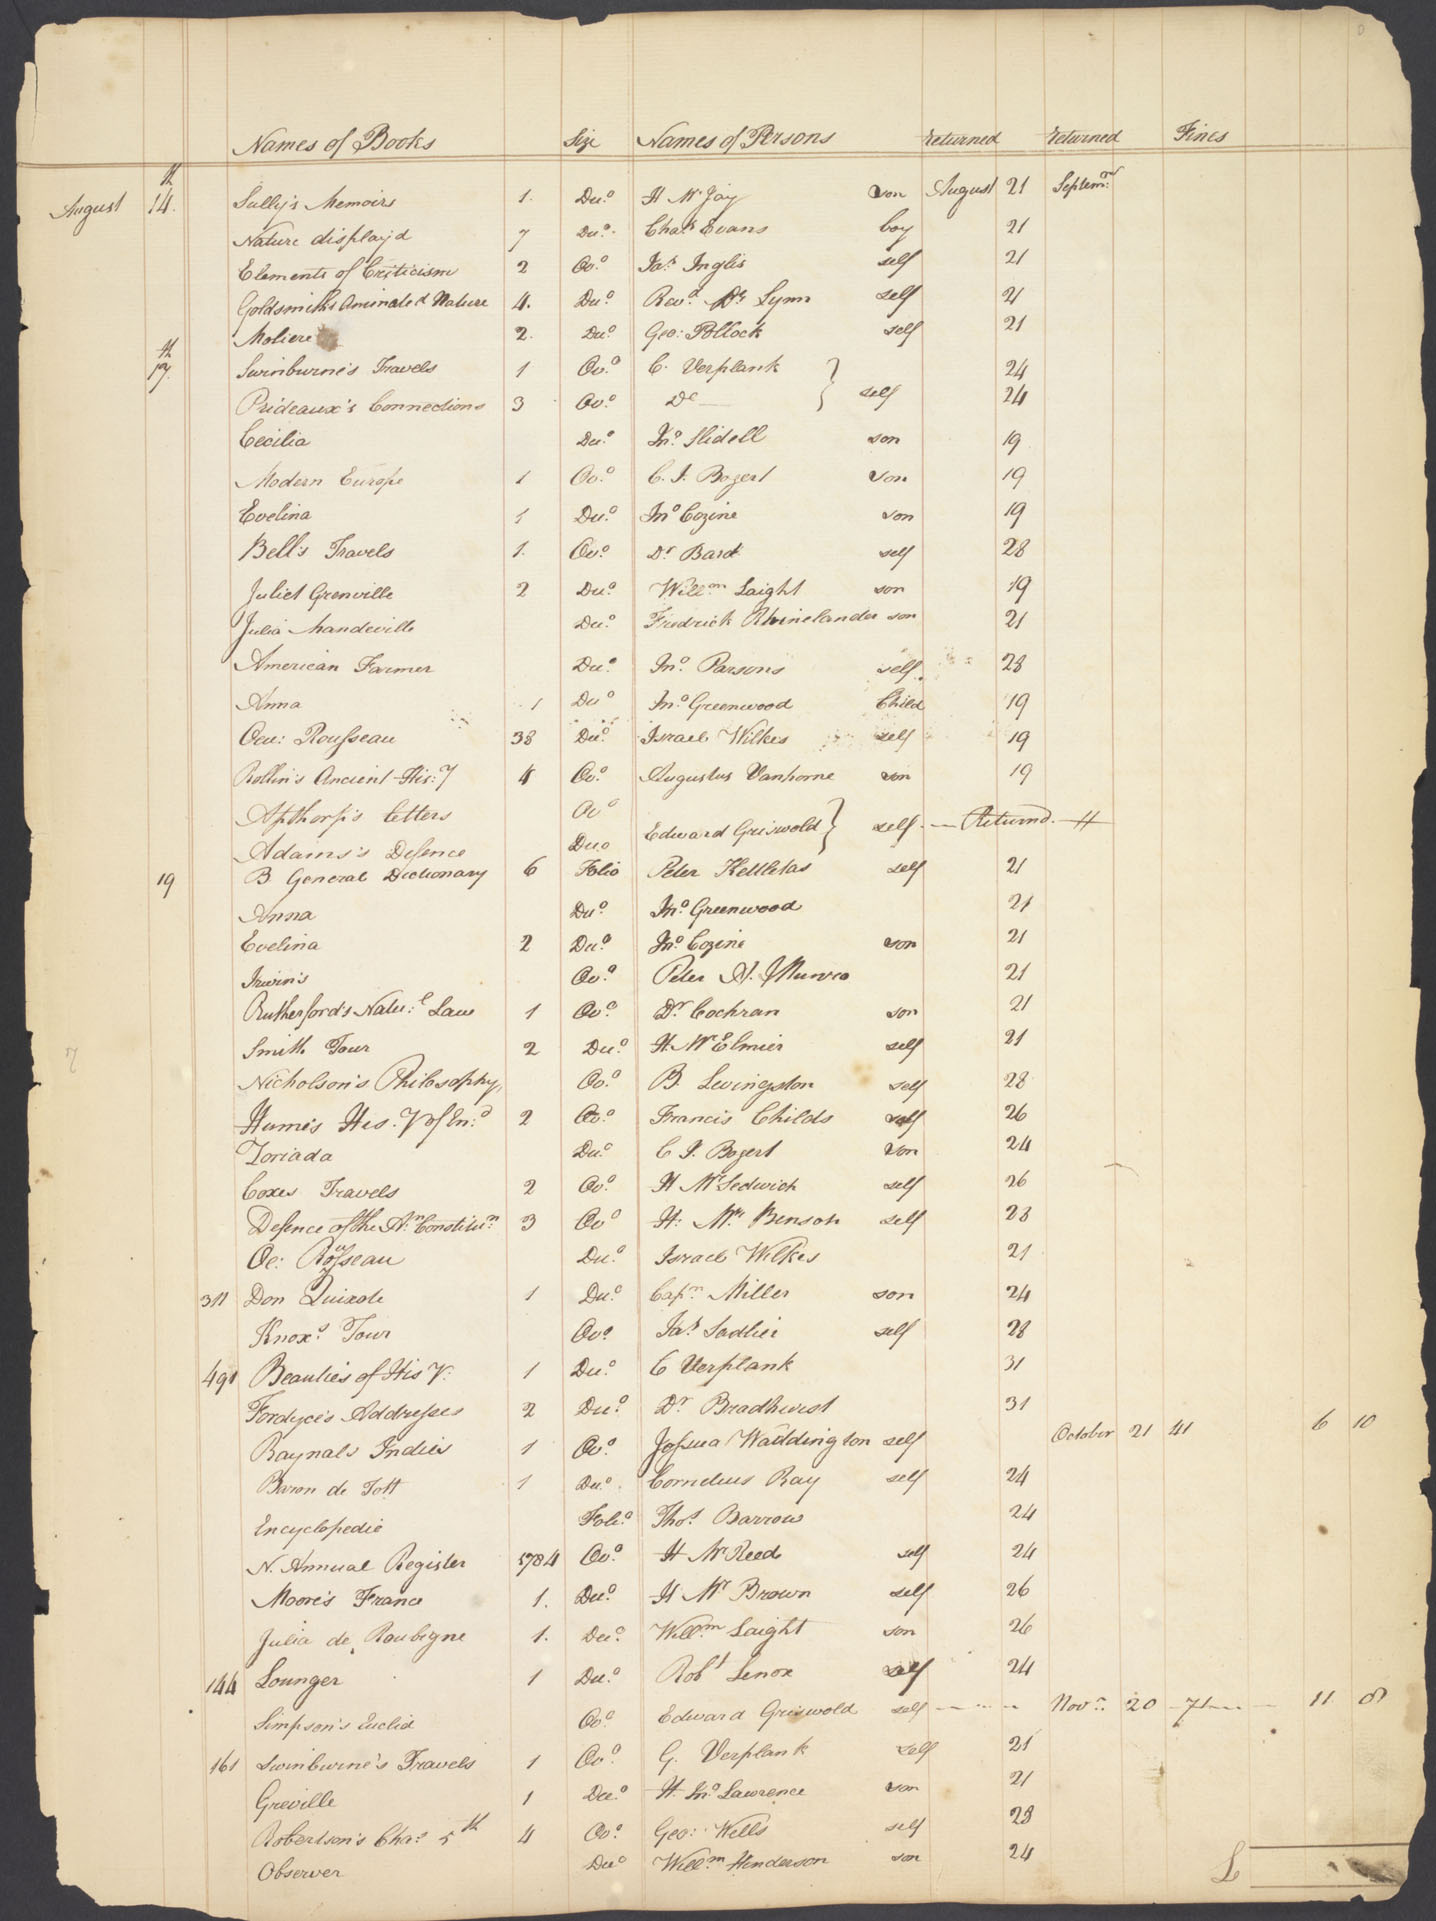 Names of Books Size Names of Persons returned returned Fines
August 14.th Sully's Memoirs 1. Du.o H Mr Jay son August 21 Septem.r
Nature display'd 7 Du.o Cha.s Evans boy 21
Elements of Criticism 2 Oo.o Ja.s Inglis self 21
Goldsmith's Aminated Nature 4. Du.o Rev.d Dr Lynn self 21
Moliere 2. Du.o Geo: Pollock self 21
17.th Swinburne's Travels 1 Oo.o C. Verplank } 24
Prideaux's Connections 3 Oo.o Do } self 24
Cecilia Du.o Jno. Slidell son 19
Modern Europe 1 Oo.o C. J. Bogert son 19
Evelina 1 Du.o Jno Cozine son 19
Bell's Travels 1. Oo.o Dr Bard self 28
Juliet Grenville 2 Du.o Will.m Laight son 19
Julia Mandeville Du.o Fredrick Rhinelander son 21
American Farmer Du.o Jno. Parsons self 28
Anna 1 Du.o Jno. Greenwood Child 19
Oeu: Rousseau 38 Du.o Israel Wilkes self 19
Rollin's Ancient His:y 4 Oo.o Augustus Vanhorne son 19
Apthorp's Letters Oo.o
Edward Griswold } self. — Returnd. —
Adams's Defence Duo
19 B General Dictionary 6 Folio Peter Kettletas self 21
Anna Du.o Jno. Greenwood 21
Evelina 2 Du.o Jno. Cozine son 21
Irwin's Oo.o Peter J. Munro 21
Rutherford's Natu:l Law 1 Oo.o Dr Cochran son 21
Smith Tour 2 Du.o H. Mr Elmier self 21
Nicholson's Philosophy, Oo.o B. Livingston self 28
Hume's His.y of En.d 2 Oo.o Francis Childs self 26
Zoriada Du.o C J. Bogert son 24
Coxes Travels 2 Oo.o H Mr Sedwick self 26
Defence of the A.n Constitu.n 3 Oo.o H: Mr. Benson self 28
Oe: Rousseau Du.o Israel Wilkes 21
311 Don Quixote 1 Du.o Cap.n Miller son 24
Knox.s Tour Oo.o Ja.s Sadlier self 28
491 Beauties of His y: 1 Du.o C Verplank 31
Fordyce's Addresses 2 Du.o Dr Bradhurst 31
Raynals Indies 1 Oo.o Joshua Waddington self October 21 41 6 10
Baron de Tott 1 Du.o Cornelius Ray self 24
Encyclopedie Foli.o Tho.s Barrow 24
N. Annual Register 1784 Oo.o H Mr Reed self 24
Moore's France 1. Du.o H Mr Brown self 26
Julia de Roubigne 1. Du.o Will.m Laight son 26
144 Lounger 1 Du.o Rob.t Lenox self 24
Simpson's Euclid Oo.o Edward Griswold self Nov.r 20 71 11 8
161 Swinburne's Travels 1 Oo.o G. Verplank self 21
Greville 1 Du.o H. Jno. Lawrence son 21
Robertson's Cha.s 5th 4 Oo.o Geo: Wells self 28
Observer Du.o Will.m Henderson son 24
L